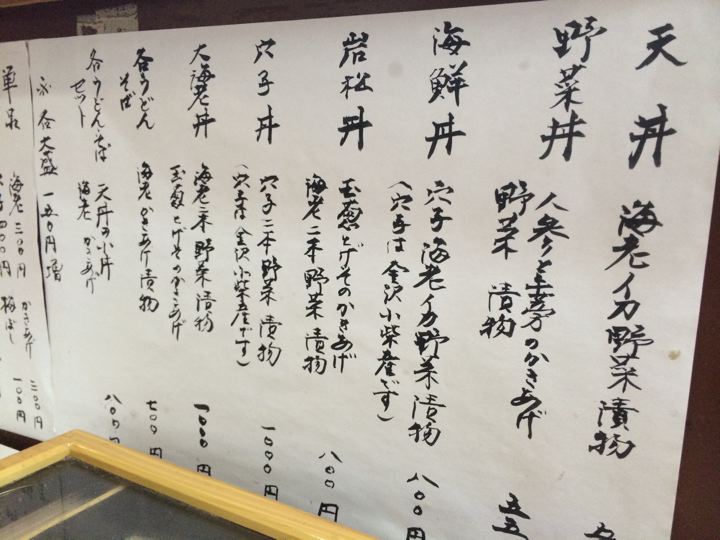 天丼 海老イカ野菜漬物
野菜丼 人参と牛蒡のかきあげ
野菜 漬物 五五
海鮮丼 穴子海老イカ野菜漬物 八00円
(穴子は金沢小柴産です)
岩松丼 玉葱とげそのかきあげ 八00円
海老二本野菜 漬物
穴子丼 穴子二本野菜 漬物 一000円
(穴子は金沢小柴産です)
大海老丼 海老三本野菜 漬物 一000円
玉葱とげそのかきあげ
各うどん 海老かきあげ漬物 七00円
そば
各うどん・そば 天丼の小丼 八00円
セット 海老 かきあげ
各大盛 一五0円増
単品 海老三00円 かきあげ 二00円
穴子四00円 梅ぼし 一00円